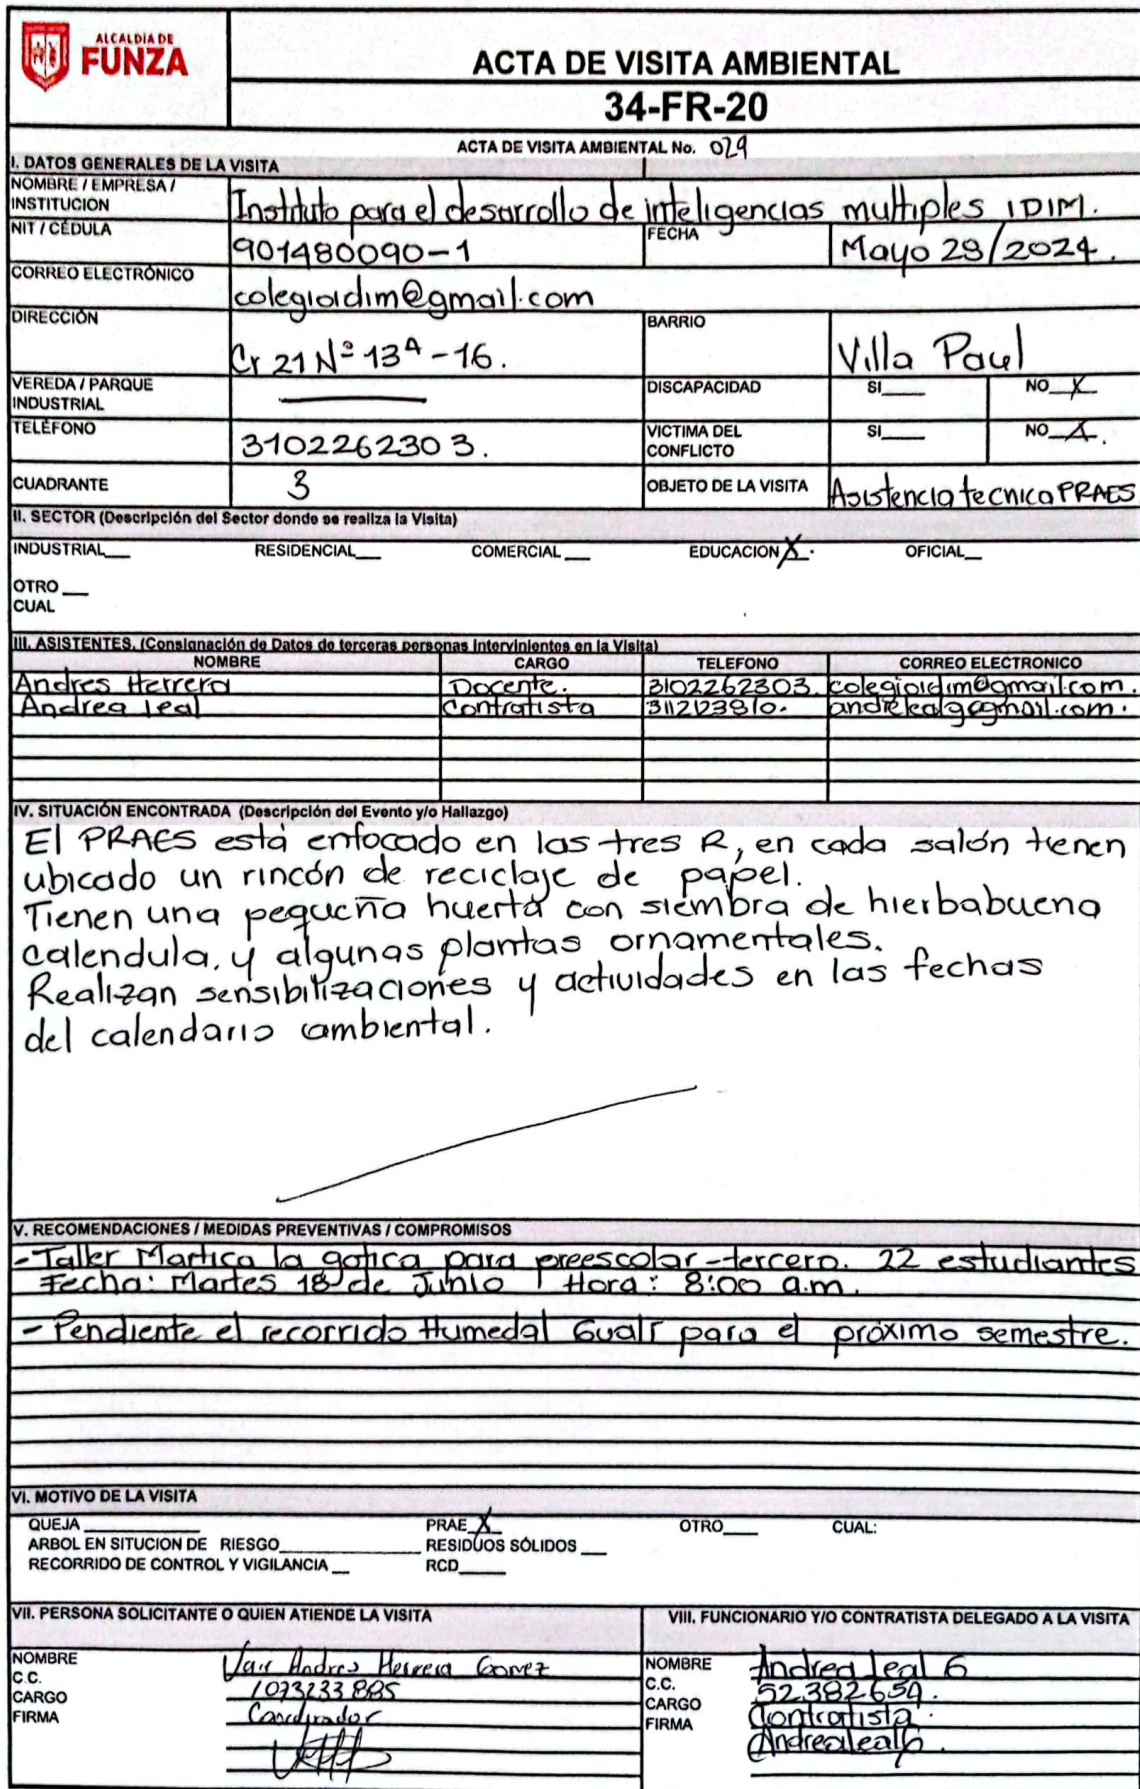 ALCALDÍA DE
FUNZA
ACTA DE VISITA AMBIENTAL
34-FR-20
ACTA DE VISITA AMBIENTAL No. 029
I. DATOS GENERALES DE LA VISITA
NOMBRE / EMPRESA / INSTITUCION Instituto para el desarrollo de inteligencias multiples IDIM.
NIT / CÉDULA 901480090-1 FECHA Mayo 29/2024.
CORREO ELECTRÓNICO colegioidim@gmail.com
DIRECCIÓN Cr 21 Nº 13A-16. BARRIO Villa Paul
VEREDA / PARQUE INDUSTRIAL DISCAPACIDAD SI____ NO X
TELÉFONO 3102262303. VICTIMA DEL CONFLICTO SI____ NO X.
CUADRANTE 3 OBJETO DE LA VISITA Asistencia tecnica PRAES
II. SECTOR (Descripción del Sector donde se realiza la Visita)
INDUSTRIAL__ RESIDENCIAL__ COMERCIAL __ EDUCACION X. OFICIAL__
OTRO __
CUAL
III. ASISTENTES. (Consignación de Datos de terceras personas intervinientes en la Visita)
NOMBRE CARGO TELEFONO CORREO ELECTRONICO
Andres Herrera Docente. 3102262303. colegioidim@gmail.com.
Andrea leal Contratista
IV. SITUACIÓN ENCONTRADA (Descripción del Evento y/o Hallazgo)
El PRAES está enfocado en las tres R, en cada salón tienen
ubicado un rincón de reciclaje de papel.
Tienen una pequeña huerta con siembra de hierbabuena
calendula, y algunas plantas ornamentales.
Realizan sensibilizaciones y actividades en las fechas
del calendario ambiental.
V. RECOMENDACIONES / MEDIDAS PREVENTIVAS / COMPROMISOS
- Taller Martica la gotica para preescolar - tercero. 22 estudiantes
Fecha: Martes 18 de Junio Hora: 8:00 a.m.
- Pendiente el recorrido Humedal Gualí para el próximo semestre.
VI. MOTIVO DE LA VISITA
QUEJA __________ PRAE X OTRO____ CUAL:
ARBOL EN SITUCION DE RIESGO____________ RESIDUOS SÓLIDOS ___
RECORRIDO DE CONTROL Y VIGILANCIA __ RCD_____
VII. PERSONA SOLICITANTE O QUIEN ATIENDE LA VISITA VIII. FUNCIONARIO Y/O CONTRATISTA DELEGADO A LA VISITA
NOMBRE Andres Herrera Gomez NOMBRE Andrea leal G
C.C. 1073233885 C.C. 52382659.
CARGO Coordinador CARGO Contratista.
FIRMA FIRMA Andrealealg.